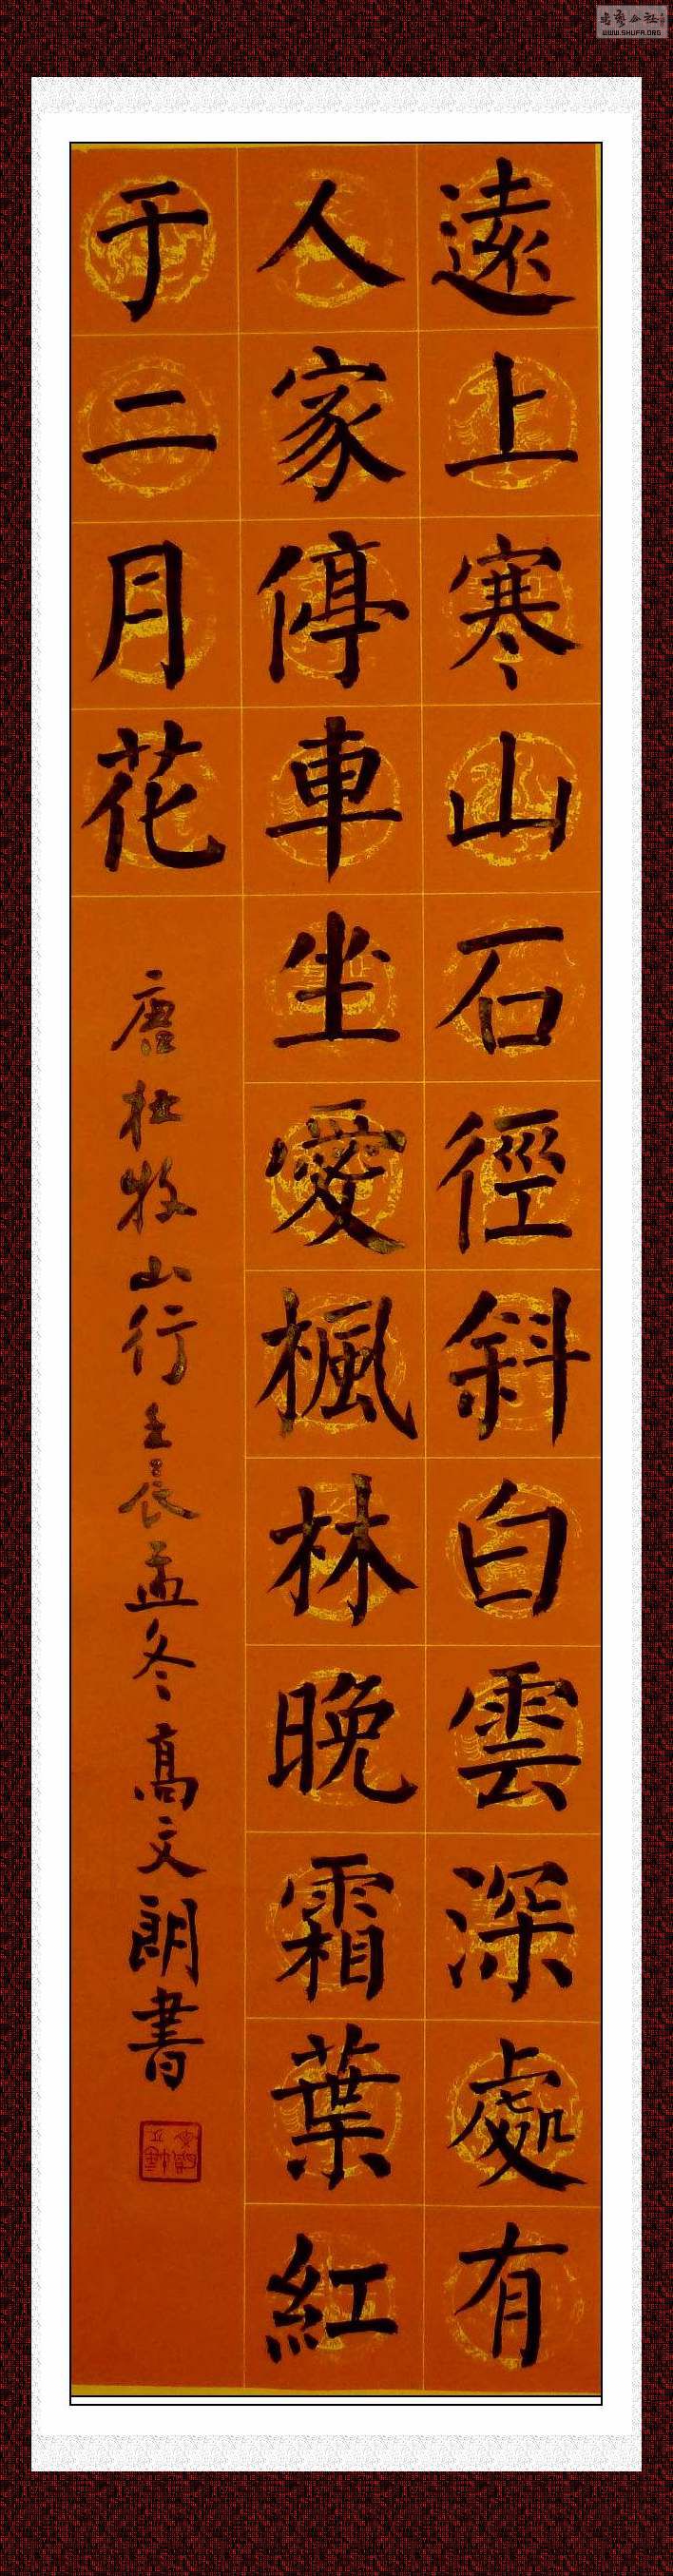 遠上寒山石徑斜白雲深處有
人家停車坐愛楓林晚霜葉紅
于二月花
唐杜牧山行壬辰孟冬高文朗書
WWW.SHUFA.ORG